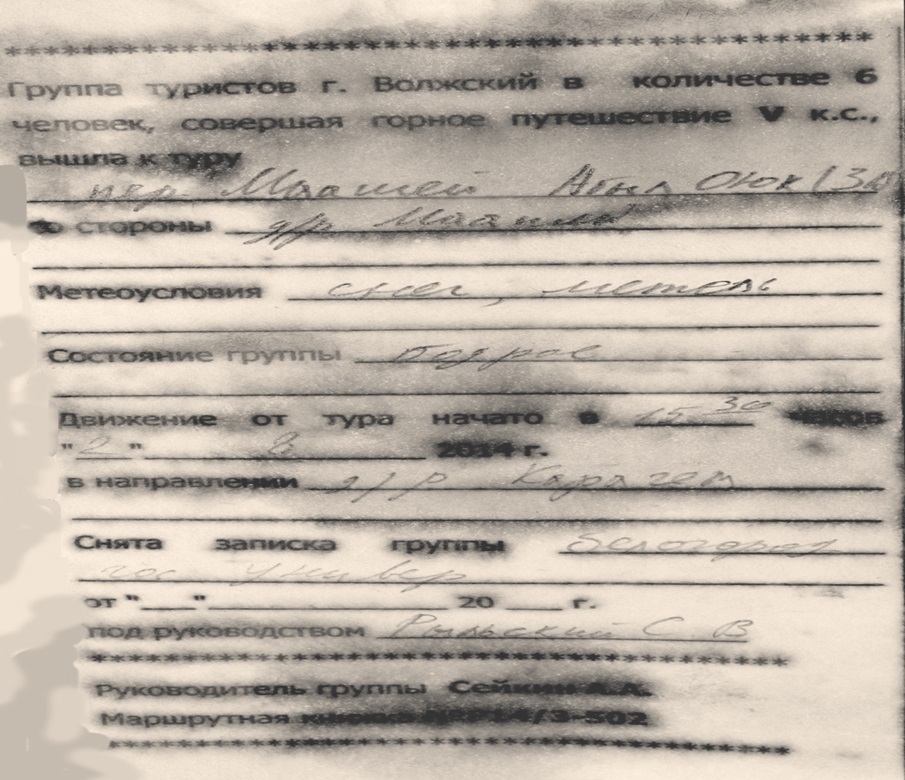 ****************************************************
Группа туристов г. Волжский в количестве 6
человек, совершая горное путешествие V к.с.,
вышла к туру
пер. Маашей Абыл Оюк (3А
со стороны д/р Маашей
Метеоусловия снег, метель
Состояние группы бодрое
Движение от тура начато в 15 30 часов
"2" 8 2014 г.
в направлении д/р Карагем
Снята записка группы белогород
гос универ
от "___"____________ 20 ___ г.
под руководством Рыльский С В
****************************************************
Руководитель группы Сейкин А.А.
Маршрутная книжка 14/3-502
****************************************************